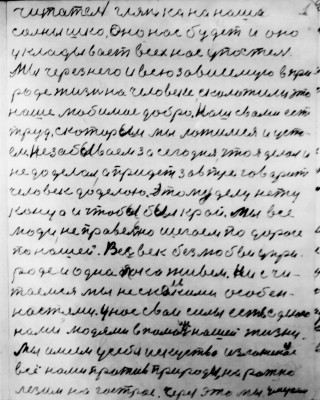 читател глянь ка на наша
солнышко. Оно нас будет и оно
укладывает всех нас у постел.
Мы через него и всю зависимую в при
роде жизнь на человеке сложили это
наше любимое добро. Наш с вами ест
труд, с которым мы ложимся и уста
ем. Не забываем за сегодня, что я делал и
не доделал, а придет завтра говорит
человек доделаю. Этому делу нету
конца и чтобы был край. Мы все
люди неправелно шагаем по дороге
по нашей. Весь век без любви у при
роде и одна тока живем. Не счи
таемся мы нескакими особен
ностями. У нас свои силы есть сделано
нами людями в
нашей жизни.
Мы имеем у себя искуство
всё нами против природы на рожно
лезим на гострое. Через это мы